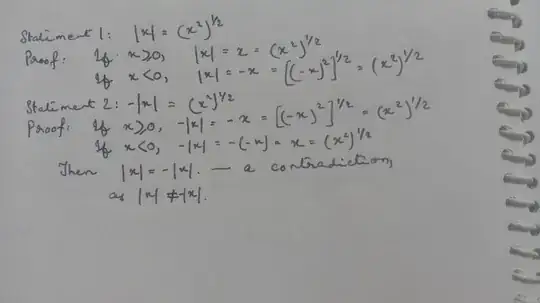 Statement 1: |x| = (x²)^1/2
Proof: If x≥0, |x| = x = (x²)^1/2
If x<0, |x| = -x = [(-x)²]^1/2 = (x²)^1/2
Statement 2: -|x| = (x²)^1/2
Proof: If x≥0, -|x| = -x = [(-x)²]^1/2 = (x²)^1/2
If x<0, -|x| = -(-x) = x = (x²)^1/2
Then |x| = -|x|. — a contradiction,
as |x| ≠ -|x|.